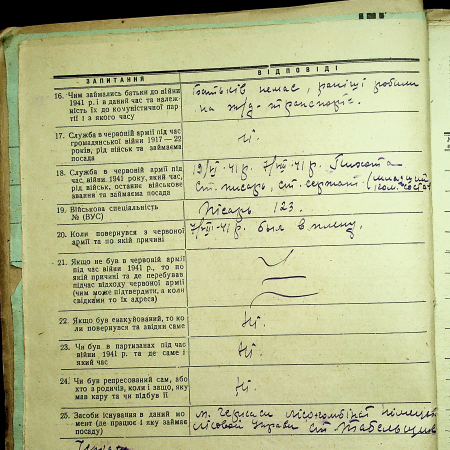 ЗАПИТАННЯ
ВІДПОВІДІ
16. Чим займались батьки до війни
1941 р. і в даний час та належ-
ність їх до комуністичної пар-
тії і з якого часу
Батьків немає, раніщі робили
на ж/д-транспорті.
17. Служба в червоній армії під час
громадянської війни 1917—22
років, рід військ та займаєма
посада
Ні.
18. Служба в червоній армії під
час війни 1941 року, який час,
рід військ, останнє військове
звання та займаєма посада
41 р. 41 р. Пихота
ст. писарь, ст. сержант (младший
ком. состав
19. Військова спеціальність
№ (ВУС)
Пісарь 123.
20. Коли повернувся з червоної
армії та по якій причині
41 р. был в плену.
21. Якщо не був в червоній армії
під час війни 1941 р., то по
якій причині та де перебував
підчас відходу червоної армії
(чим може підтвердити, а коли
свідками то їх адреса)
22. Якщо був евакуйований, то ко-
ли повернувся та звідки саме
Ні.
23. Чи був в партизанах під час
війни 1941 р. та де саме і
який час
Ні.
24. Чи був репресований сам, або
хто з родичів, коли і защо, яку
мав кару та чи відбув її
Ні.
25. Засоби існування в даний мо-
мент (де працює і яку займає
посаду)
м. Черкаси лісокомбінат німецк
лісовой управи ст. табельщик